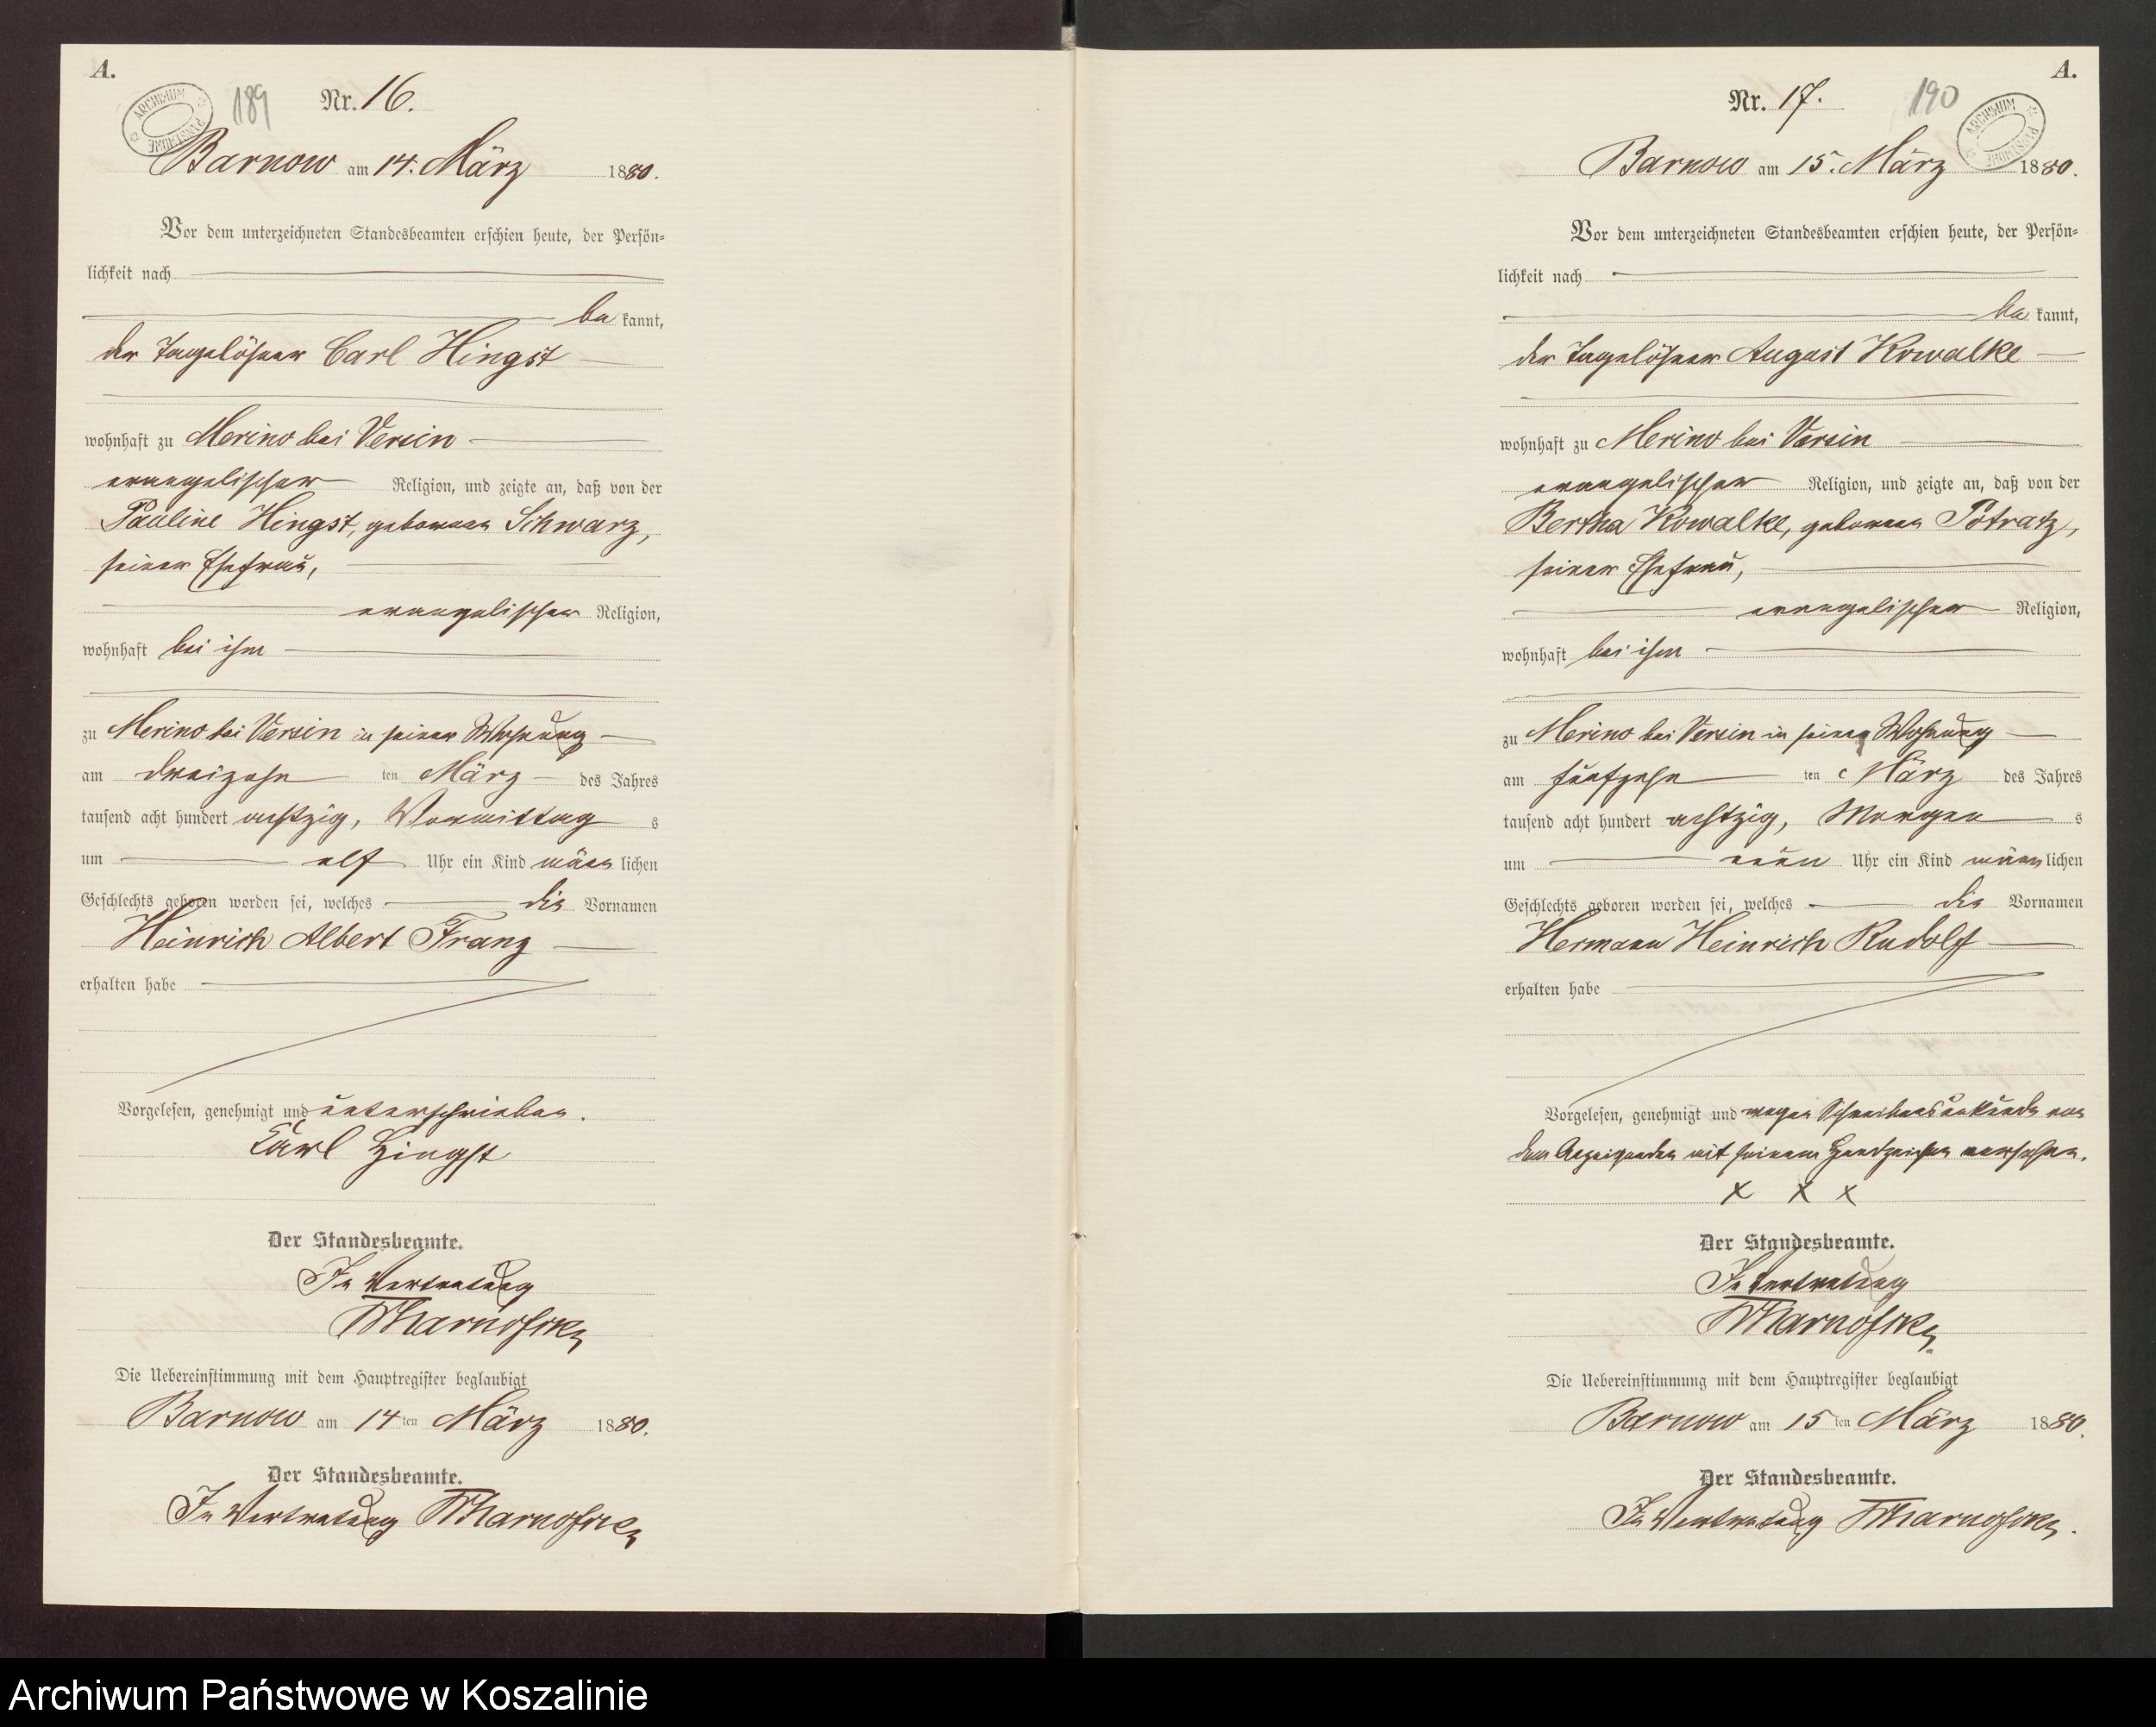 A.
189
Nr. 16.
ARCHIWUM PAŃSTWOWE
Barnow am 14. März 1880.
Vor dem unterzeichneten Standesbeamten erschien heute, der Persön-
lichkeit nach
bekannt,
der Tagelöhner Carl Hingst
wohnhaft zu Merino bei Versin
evangelischer Religion, und zeigte an, daß von der
Pauline Hingst, geborenen Schwarz,
seiner Ehefrau,
evangelischer Religion,
wohnhaft bei ihm
zu Merino bei Versin in seiner Wohnung
am dreizehn ten März des Jahres
tausend acht hundert achtzig, Vormittag s
um elf Uhr ein Kind männlichen
Geschlechts geboren worden sei, welches die Vornamen
Heinrich Albert Franz
erhalten habe
Vorgelesen, genehmigt und unterschrieben.
Carl Hingst
Der Standesbeamte.
In Vertretung
Die Uebereinstimmung mit dem Hauptregister beglaubigt
Barnow am 14ten März 1880.
Der Standesbeamte.
In Vertretung
A.
Nr. 17.
190
ARCHIWUM PAŃSTWOWE
Barnow am 15. März 1880.
Vor dem unterzeichneten Standesbeamten erschien heute, der Persön-
lichkeit nach
bekannt,
der Tagelöhner August Kowalke
wohnhaft zu Merino bei Versin
evangelischer Religion, und zeigte an, daß von der
Bertha Kowalke, geborenen Potratz,
seiner Ehefrau,
evangelischer Religion,
wohnhaft bei ihm
zu Merino bei Versin in seiner Wohnung
am fünfzehn ten März des Jahres
tausend acht hundert achtzig, Morgen s
um neun Uhr ein Kind männlichen
Geschlechts geboren worden sei, welches die Vornamen
Hermann Heinrich Rudolf
erhalten habe
Vorgelesen, genehmigt und wegen Schreibensunkunde von
dem Anzeigenden mit seinem Handzeichen versehen.
x x x
Der Standesbeamte.
In Vertretung
Die Uebereinstimmung mit dem Hauptregister beglaubigt
Barnow am 15ten März 1880.
Der Standesbeamte.
In Vertretung
Archiwum Państwowe w Koszalinie